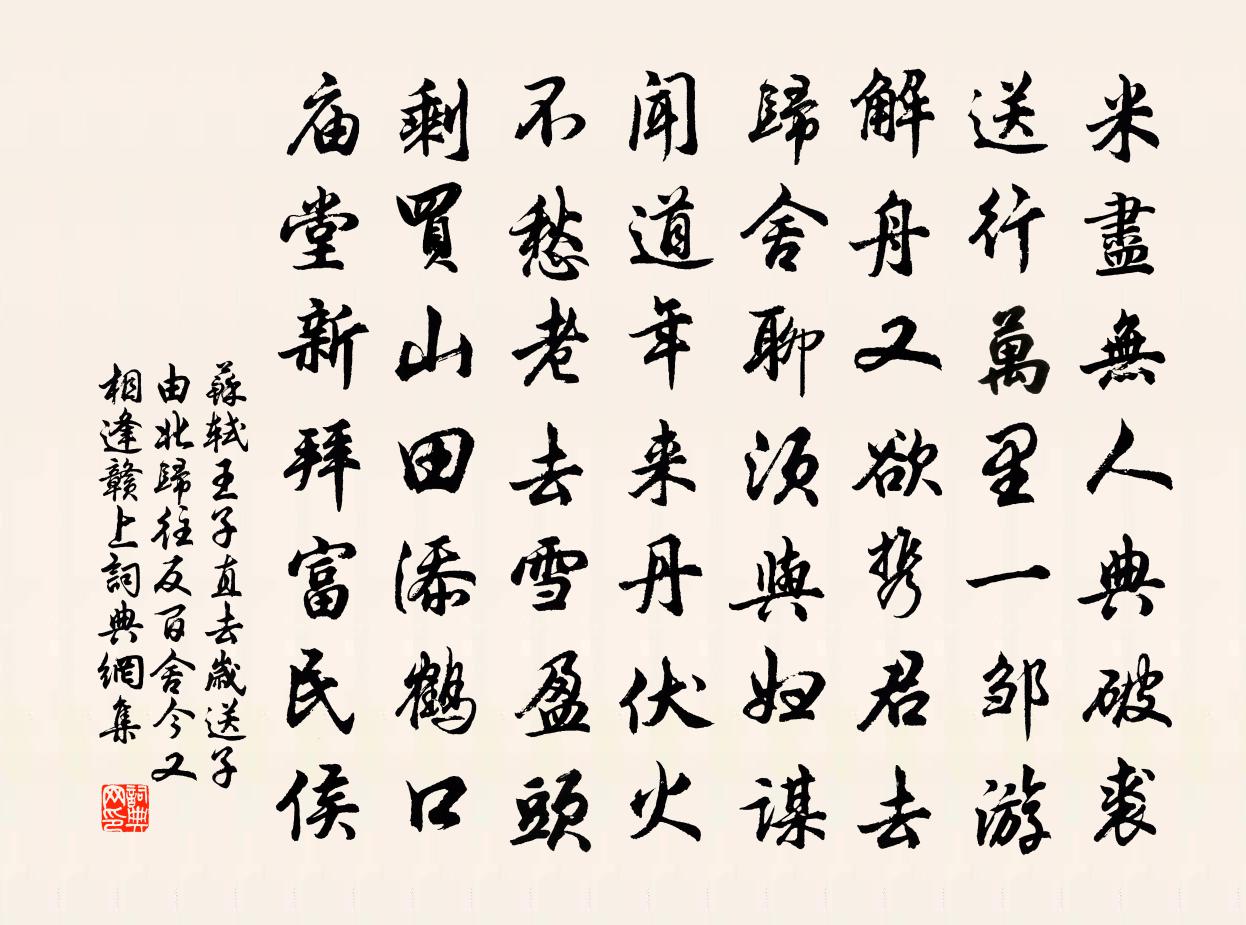 米盡無人典破裘
送行萬里一邹游
解舟又欲携君去
歸舍聊須與妇謀
闻道年来丹伏火
不愁老去雪盈頭
剩買山田添鶴口
庙堂新拜富民侯
蘇轼王子直去歲送子
由北歸往反百舍今又
相逢赣上詞典網集
詞典
网印